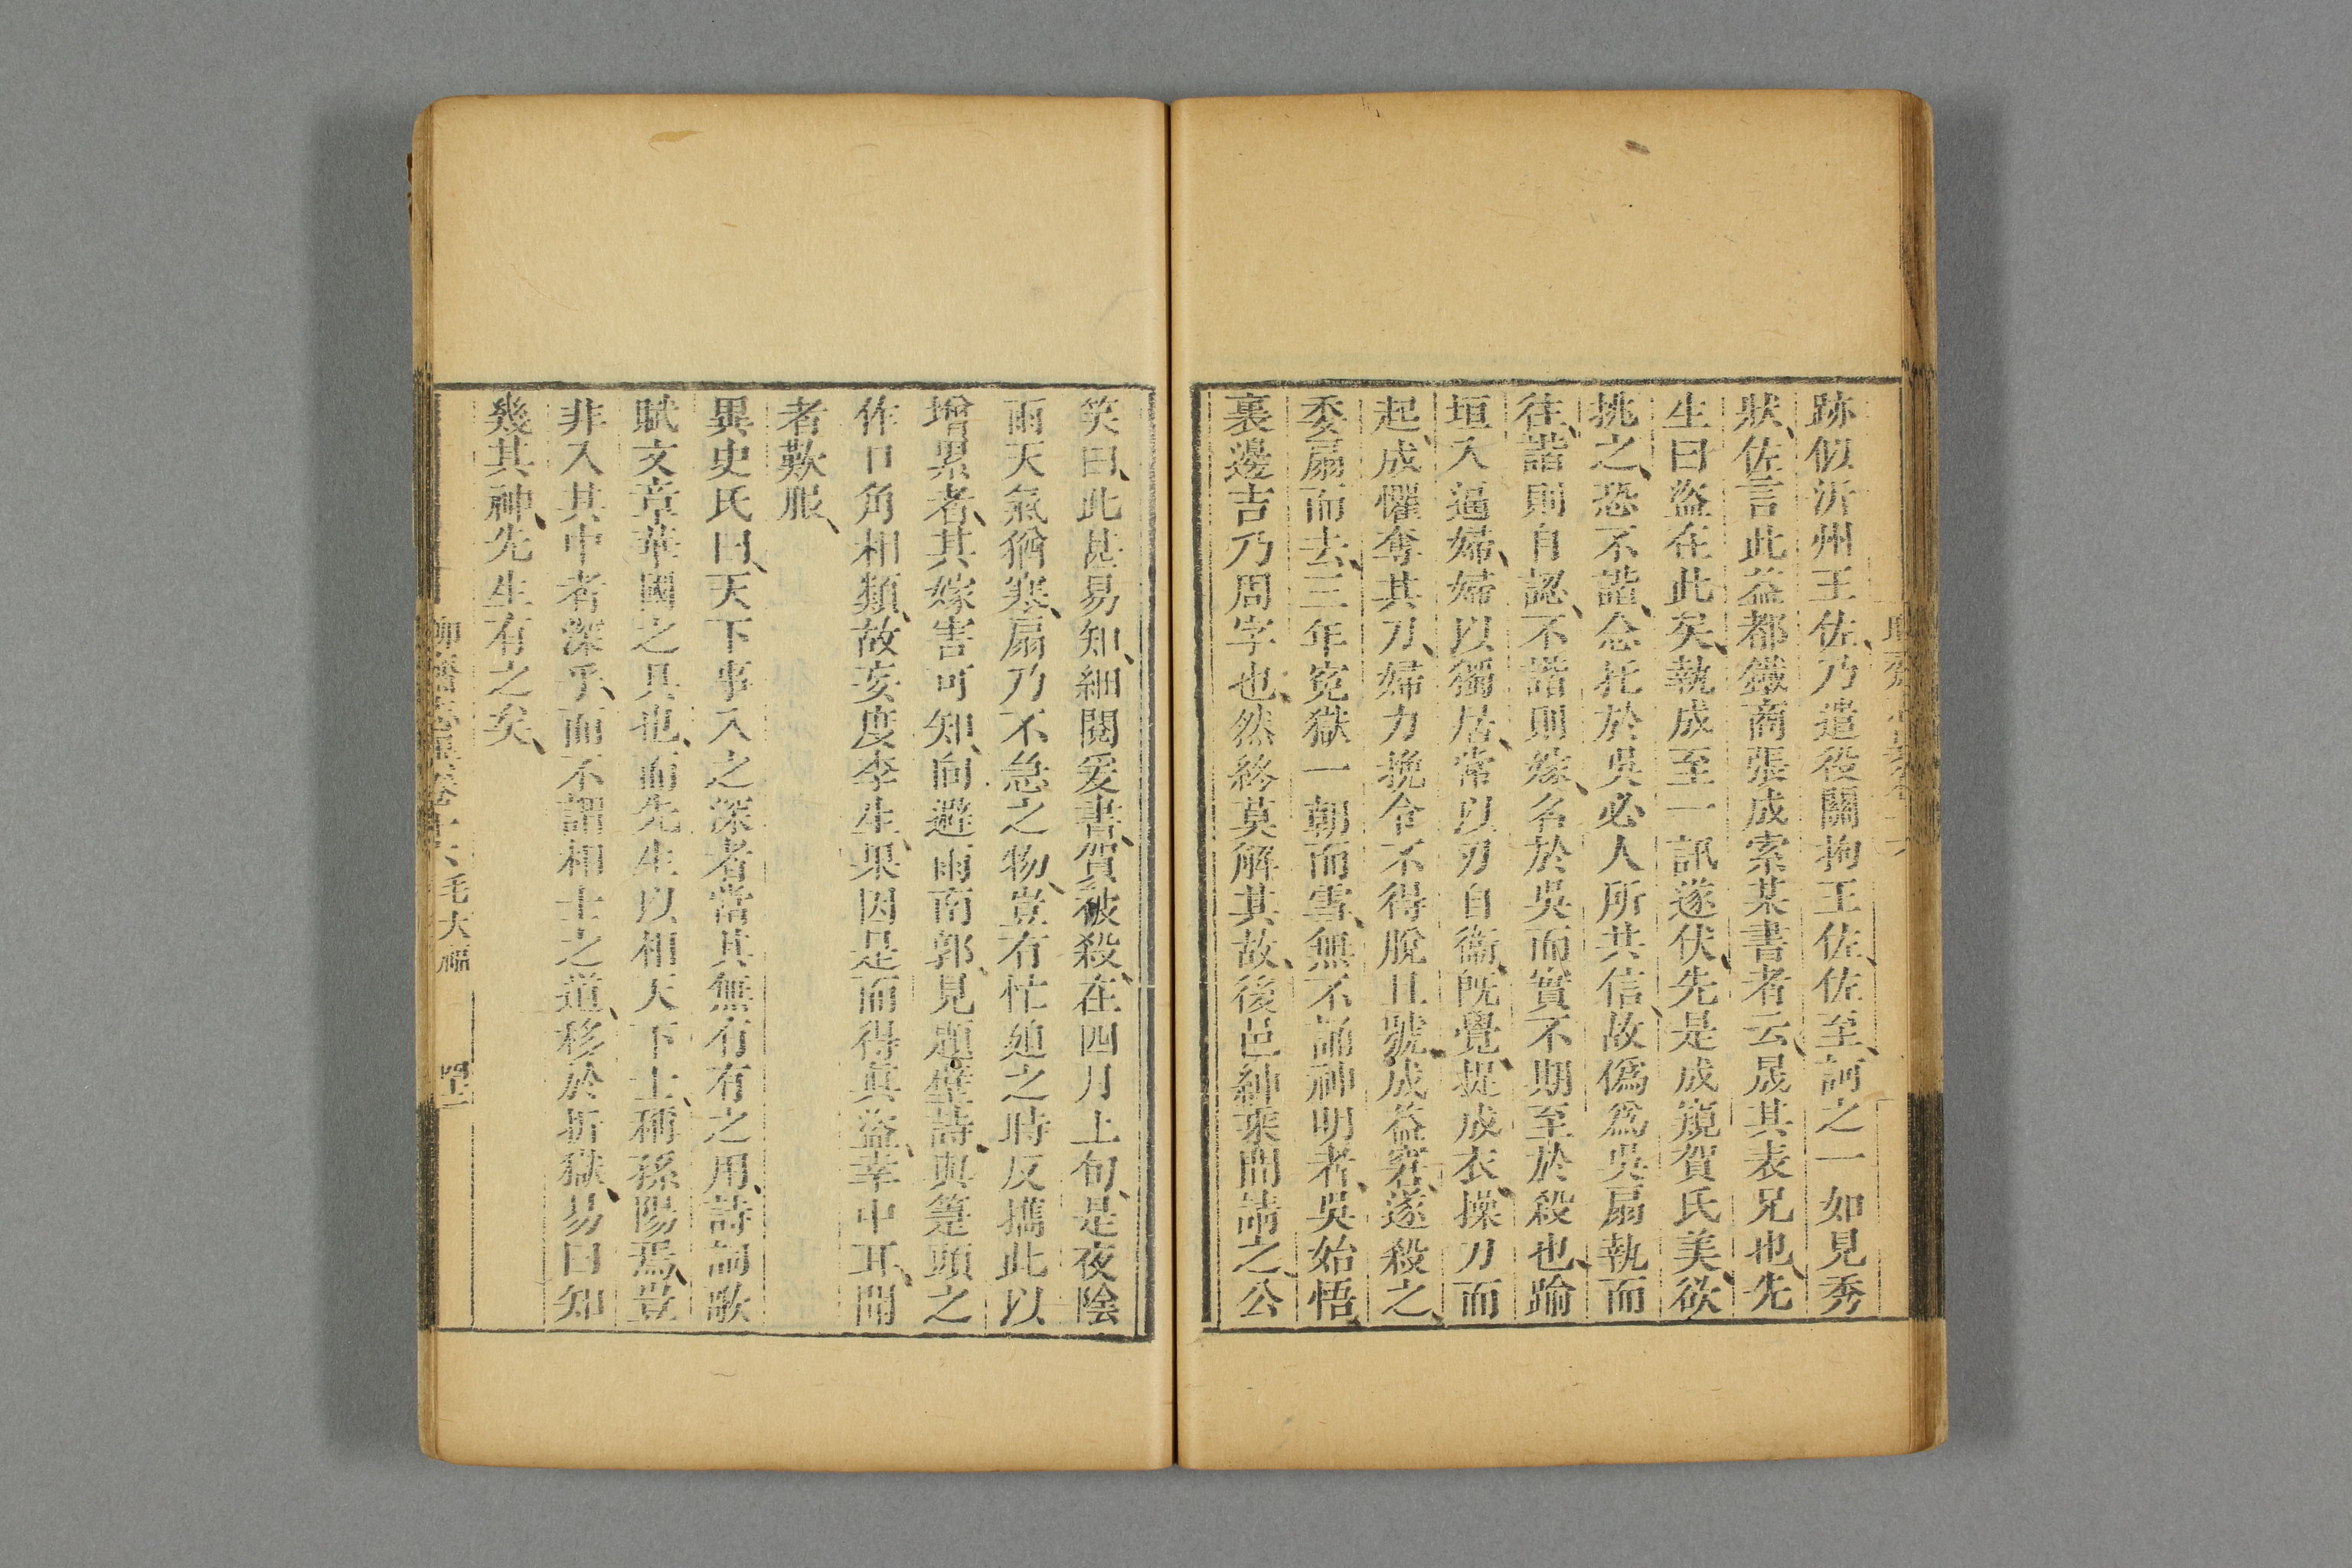 跡似沂州王佐、乃遣役關拘王佐、佐至、訶之一如見秀
狀、佐言此益都鐵商張成索某書者云、晟其表兄也、先
生曰盜在此矣、執成至一訊遂伏、先是成窺賀氏美、欲
挑之、恐不諧、念托於吳必人所共信、故僞爲吳扇執而
往、諧則自認、不諧則嫁、名於吳而實不期至於殺也、踰
垣入逼婦、婦以獨居、常以刃自衞、旣覺、捉成衣、操刀而
起、成懼奪其刀、婦力挽令不得脫且號、成益窘、遂殺之、
委扇而去、三年寃獄一朝而雪、無不誦神明者、吳始悟、
裏邊吉乃周字也、然終莫解其故、後邑紳乘間請之、公
笑曰、此甚易知、細閱爰書、賀被殺、在四月上旬、是夜陰
雨天氣猶寒、扇乃不急之物、豈有忙迫之時反攜此以
增累者、其嫁害可知、向避雨南郭、見題壁詩、與箑頭之
作口角相類、故妄度李生、果因是而得眞盜、幸中耳、聞
者歎服、
異史氏曰、天下事入之深者當其無有有之用、詩詞歌
賦文章華國之具也、而先生以相天下士、稱孫陽焉、豈
非入其中者深乎、而不謂相士之道、移於折獄、易曰知
幾其神、先生有之矣、
聊齋志異卷十六 毛大福